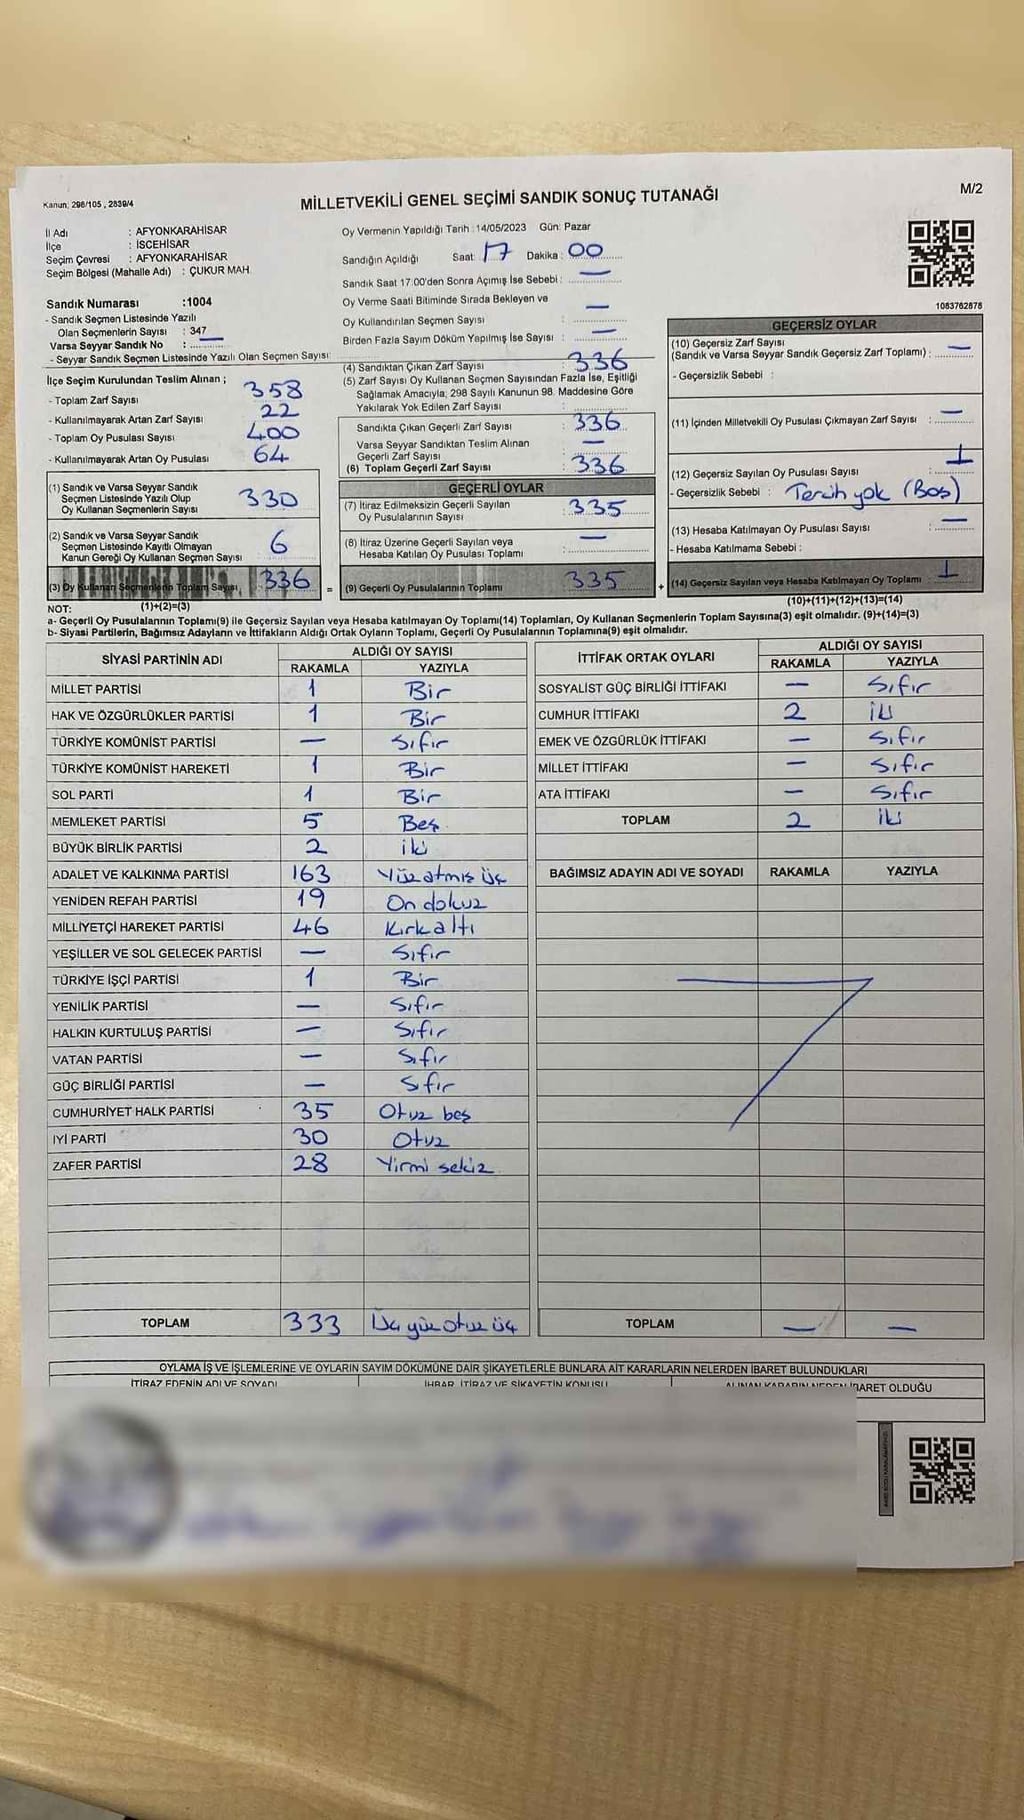 Kanun; 298/105 , 2839/4
MİLLETVEKİLİ GENEL SEÇİMİ SANDIK SONUÇ TUTANAĞI
M/2
İl Adı : AFYONKARAHİSAR
İlçe : İSCEHİSAR
Seçim Çevresi : AFYONKARAHİSAR
Seçim Bölgesi (Mahalle Adı) : ÇUKUR MAH.
Sandık Numarası :1004
- Sandık Seçmen Listesinde Yazılı
Olan Seçmenlerin Sayısı : 347
Varsa Seyyar Sandık No : —
- Seyyar Sandık Seçmen Listesinde Yazılı Olan Seçmen Sayısı :
İlçe Seçim Kurulundan Teslim Alınan ;
- Toplam Zarf Sayısı 358
- Kullanılmayarak Artan Zarf Sayısı 22
- Toplam Oy Pusulası Sayısı 400
- Kullanılmayarak Artan Oy Pusulası 64
(1) Sandık ve Varsa Seyyar Sandık
Seçmen Listesinde Yazılı Olup
Oy Kullanan Seçmenlerin Sayısı 330
(2) Sandık ve Varsa Seyyar Sandık
Seçmen Listesinde Kayıtlı Olmayan
Kanun Gereği Oy Kullanan Seçmen Sayısı 6
(3) Oy Kullanan Seçmenlerin Toplam Sayısı 336
Oy Vermenin Yapıldığı Tarih : 14/05/2023 Gün: Pazar
Sandığın Açıldığı Saat: 17 Dakika : 00
Sandık Saat 17:00'den Sonra Açımış İse Sebebi : —
Oy Verme Saati Bitiminde Sırada Bekleyen ve
Oy Kullandırılan Seçmen Sayısı : —
Birden Fazla Sayım Döküm Yapılmış İse Sayısı : —
(4) Sandıktan Çıkan Zarf Sayısı : 336
(5) Zarf Sayısı Oy Kullanan Seçmen Sayısından Fazla İse, Eşitliği
Sağlamak Amacıyla; 298 Sayılı Kanunun 98. Maddesine Göre
Yakılarak Yok Edilen Zarf Sayısı :
Sandıkta Çıkan Geçerli Zarf Sayısı : 336
Varsa Seyyar Sandıktan Teslim Alınan
Geçerli Zarf Sayısı : —
(6) Toplam Geçerli Zarf Sayısı : 336
GEÇERLİ OYLAR
(7) İtiraz Edilmeksizin Geçerli Sayılan
Oy Pusulalarının Sayısı : 335
(8) İtiraz Üzerine Geçerli Sayılan veya
Hesaba Katılan Oy Pusulası Toplamı : —
= (9) Geçerli Oy Pusulalarının Toplamı 335 +
1083762878
GEÇERSİZ OYLAR
(10) Geçersiz Zarf Sayısı
(Sandık ve Varsa Seyyar Sandık Geçersiz Zarf Toplamı) : —
- Geçersizlik Sebebi :
(11) İçinden Milletvekili Oy Pusulası Çıkmayan Zarf Sayısı : —
(12) Geçersiz Sayılan Oy Pusulası Sayısı : 1
- Geçersizlik Sebebi : Tercih yok (Boş)
(13) Hesaba Katılmayan Oy Pusulası Sayısı : —
- Hesaba Katılmama Sebebi :
(14) Geçersiz Sayılan veya Hesaba Katılmayan Oy Toplamı 1
NOT: (1)+(2)=(3) (10)+(11)+(12)+(13)=(14)
a- Geçerli Oy Pusulalarının Toplamı(9) ile Geçersiz Sayılan veya Hesaba katılmayan Oy Toplamı(14) Toplamları, Oy Kullanan Seçmenlerin Toplam Sayısına(3) eşit olmalıdır. (9)+(14)=(3)
b- Siyasi Partilerin, Bağımsız Adayların ve İttifakların Aldığı Ortak Oyların Toplamı, Geçerli Oy Pusulalarının Toplamına(9) eşit olmalıdır.
SİYASİ PARTİNİN ADI ALDIĞI OY SAYISI
RAKAMLA YAZIYLA
MİLLET PARTİSİ 1 Bir
HAK VE ÖZGÜRLÜKLER PARTİSİ 1 Bir
TÜRKİYE KOMÜNİST PARTİSİ — Sıfır
TÜRKİYE KOMÜNİST HAREKETİ 1 Bir
SOL PARTİ 1 Bir
MEMLEKET PARTİSİ 5 Beş
BÜYÜK BİRLİK PARTİSİ 2 iki
ADALET VE KALKINMA PARTİSİ 163 Yüz atmış üç
YENİDEN REFAH PARTİSİ 19 On dokuz
MİLLİYETÇİ HAREKET PARTİSİ 46 Kırk altı
YEŞİLLER VE SOL GELECEK PARTİSİ — Sıfır
TÜRKİYE İŞÇİ PARTİSİ 1 Bir
YENİLİK PARTİSİ — Sıfır
HALKIN KURTULUŞ PARTİSİ — Sıfır
VATAN PARTİSİ — Sıfır
GÜÇ BİRLİĞİ PARTİSİ — Sıfır
CUMHURİYET HALK PARTİSİ 35 Otuz beş
İYİ PARTİ 30 Otuz
ZAFER PARTİSİ 28 Yirmi sekiz
TOPLAM 333 Üç yüz otuz üç
İTTİFAK ORTAK OYLARI ALDIĞI OY SAYISI
RAKAMLA YAZIYLA
SOSYALİST GÜÇ BİRLİĞİ İTTİFAKI — Sıfır
CUMHUR İTTİFAKI 2 iki
EMEK VE ÖZGÜRLÜK İTTİFAKI — Sıfır
MİLLET İTTİFAKI — Sıfır
ATA İTTİFAKI — Sıfır
TOPLAM 2 iki
BAĞIMSIZ ADAYIN ADI VE SOYADI RAKAMLA YAZIYLA
TOPLAM — —
OYLAMA İŞ VE İŞLEMLERİNE VE OYLARIN SAYIM DÖKÜMÜNE DAİR ŞİKAYETLERLE BUNLARA AİT KARARLARIN NELERDEN İBARET BULUNDUKLARI
İTİRAZ EDENİN ADI VE SOYADI İHBAR, İTİRAZ VE ŞİKAYETİN KONUSU ALINAN KARARIN NEDEN İBARET OLDUĞU